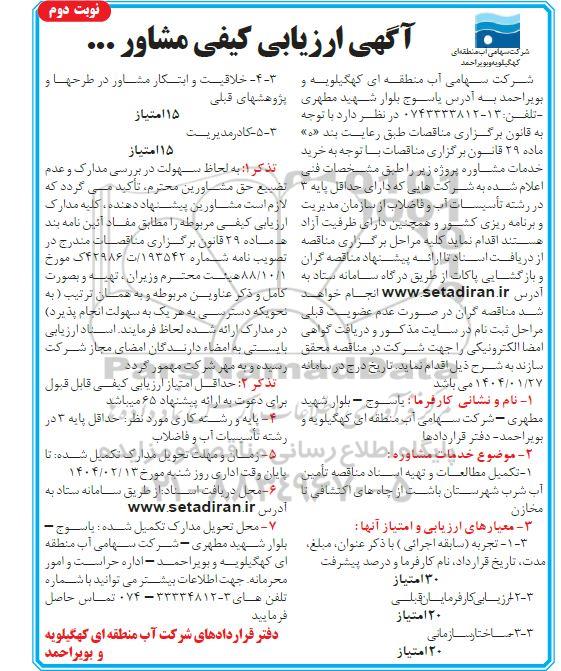 نوبت دوم
آگهی ارزیابی کیفی مشاور ...
شرکت سهامی آب منطقه‌ای
کهگیلویه و بویراحمد
شرکت سهامی آب منطقه ای کهگیلویه و
بویراحمد به آدرس یاسوج بلوار شهید مطهری
-تلفن:۱۳-۰۷۴۳۳۳۳۸۱۲ در نظر دارد با توجه
به قانون برگزاری مناقصات طبق رعایت بند «ه»
ماده ۲۹ قانون برگزاری مناقصات با توجه به خرید
خدمات مشاوره پروژه زیر را طبق مشخصات فنی
اعلام شده به شرکت هایی که دارای حداقل پایه ۳
در رشته تأسیسات آب و فاضلاب از سازمان مدیریت
و برنامه ریزی کشور و همچنین دارای ظرفیت آزاد
هستند اقدام نماید کلیه مراحل برگزاری مناقصه
از دریافت اسناد تا ارائه پیشنهاد مناقصه گران
و بازگشایی پاکات از طریق درگاه سامانه ستاد به
آدرس www.setadiran.ir انجام خواهد
شد مناقصه گران در صورت عدم عضویت قبلی
مراحل ثبت نام در سایت مذکور و دریافت گواهی
امضا الکترونیکی را جهت شرکت در مناقصه محقق
سازند به شرح ذیل اقدام نماید. تاریخ درج در سامانه
۱۴۰۴/۰۱/۲۷ می باشد
۱- نام و نشانی کارفرما : یاسوج – بلوار شهید
مطهری – شرکت سهامی آب منطقه ای کهگیلویه و
بویراحمد- دفتر قراردادها
۲- موضوع خدمات مشاوره :
۱-تکمیل مطالعات و تهیه اسناد مناقصه تأمین
آب شرب شهرستان باشت از چاه های اکتشافی تا
مخازن
۳- معیارهای ارزیابی و امتیاز آنها :
۳-۱- تجربه (سابقه اجرائی ) با ذکر عنوان، مبلغ،
مدت، تاریخ قرارداد، نام کارفرما و درصد پیشرفت
۳۰ امتیاز
۳-۲-ارزیابی کارفرمایان قبلی
۲۰ امتیاز
۳-۳-ساختار سازمانی
۲۰ امتیاز
۳-۴- خلاقیت و ابتکار مشاور در طرحها و
پژوهشهای قبلی
۱۵ امتیاز
۳-۵-کادر مدیریت
۱۵ امتیاز
تذکر۱: به لحاظ سهولت در بررسی مدارک و عدم
تضییع حق مشاورین محترم، تأکید می گردد که
لازم است مشاورین پیشنهاد دهنده ، کلیه مدارک
ارزیابی کیفی مربوطه را مطابق مفاد آئین نامه بند
ه ماده ۲۹ قانون برگزاری مناقصات مندرج در
تصویب نامه شماره ۱۹۳۵۴۲/ت ۴۲۹۸۶ک مورخ
۸۸/۱۰/۱ هیئت محترم وزیران ، تهیه و بصورت
کامل و ذکر عناوین مربوطه و به همان ترتیب ( به
نحویکه دسترسی به هر یک به سهولت انجام پذیرد)
در مدارک ارائه شده لحاظ فرمایند. اسناد ارزیابی
بایستی به امضاء دارندگان امضای مجاز شرکت
رسیده و به مهر شرکت ممهور گردد
تذکر ۲: حداقل امتیاز ارزیابی کیفی قابل قبول
برای دعوت به ارائه پیشنهاد ۶۵ میباشد
۴- پایه و رشته کاری مورد نظر: حداقل پایه ۳ در
رشته تأسیسات آب و فاضلاب
۵- زمان و مهلت تحویل مدارک تکمیل شده: تا
پایان وقت اداری روز شنبه مورخ ۱۴۰۴/۰۲/۱۳
۶- محل دریافت اسناد: از طریق سامانه ستاد به
آدرس www.setadiran.ir
۷- محل تحویل مدارک تکمیل شده : یاسوج –
بلوار شهید مطهری – شرکت سهامی آب منطقه
ای کهگیلویه و بویراحمد – اداره حراست و امور
محرمانه. جهت اطلاعات بیشتر می توانید با شماره
تلفن های ۳-۳۳۳۳۴۸۱۲ – ۰۷۴ تماس حاصل
فرمایید
دفتر قراردادهای شرکت آب منطقه ای کهگیلویه
و بویراحمد